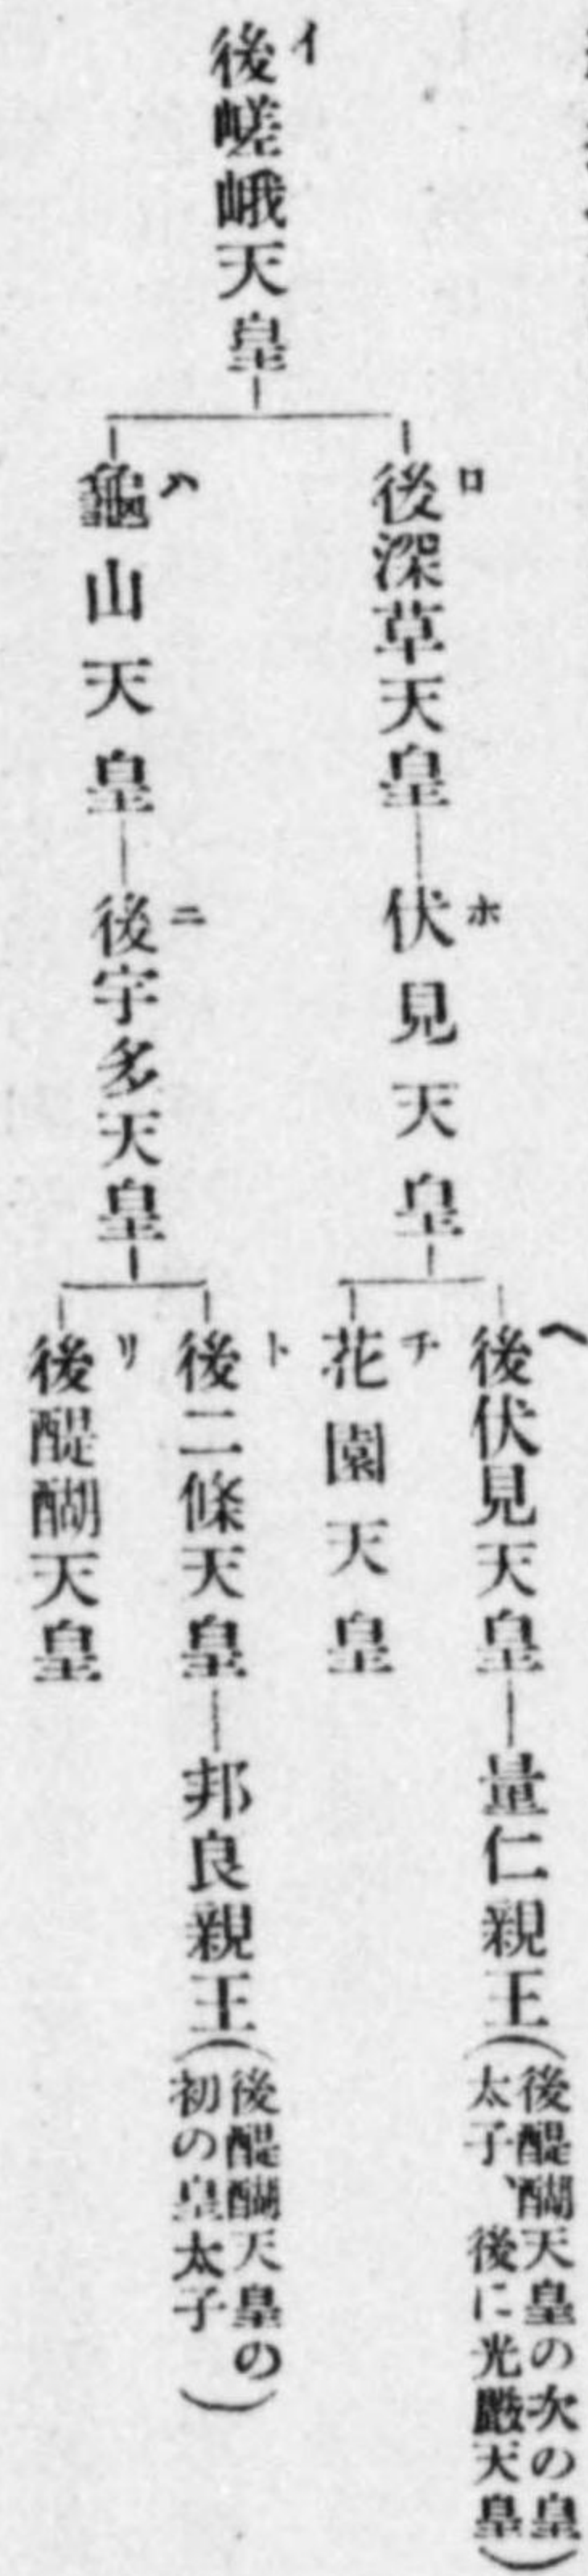 イ
後嵯峨天皇
ロ
後深草天皇
ホ
伏見天皇
ヘ
後伏見天皇
量仁親王(後醍醐天皇の次の皇
太子、後に光嚴天皇)
チ
花園天皇
ハ
龜山天皇
ニ
後宇多天皇
ト
後二條天皇
邦良親王(後醍醐天皇の
初の皇太子)
リ
後醍醐天皇